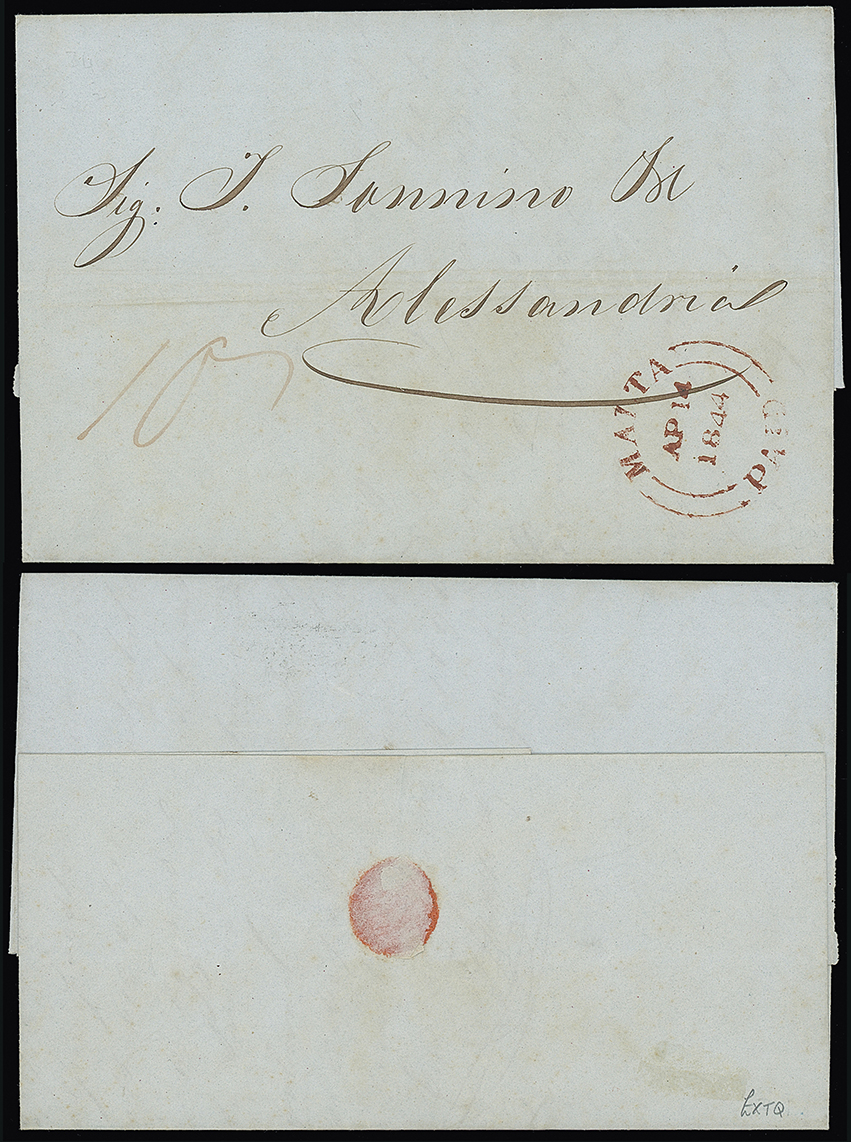 Sig. I. Sonnino
Alessandria
10
MALTA
AP 14
1844
PAID
£XTQ